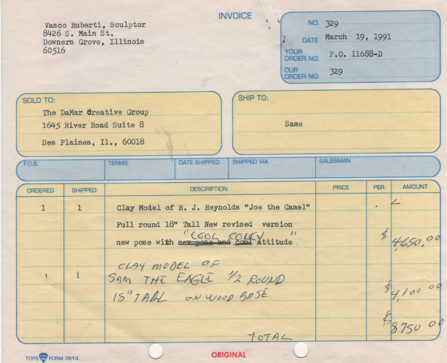 INVOICE
Vasco Ruberti, Sculptor
8426 S. Main St.
Downers Grove, Illinois
60516
NO. 329
DATE March 19, 1991
YOUR ORDER NO. P.O. 11688-D
OUR ORDER NO. 329
SOLD TO:
The DaMar Creative Group
1645 River Road Suite 8
Des Plaines, Il., 60018
SHIP TO:
Same
F.O.B. TERMS DATE SHIPPED SHIPPED VIA SALESMAN
ORDERED SHIPPED DESCRIPTION PRICE PER AMOUNT
1 1 Clay Model of R. J. Reynolds "Joe the Camel"
Full round 18" Tall New revised version
"COOL COCKY"
new pose with new pose and cool attitude $4,650,00
CLAY MODEL OF
1 1 SAM THE EAGLE 1/2 ROUND
15" TALL ON WOOD BASE $4,100 00
TOTAL $8750 00
TOPS FORM 3613
ORIGINAL